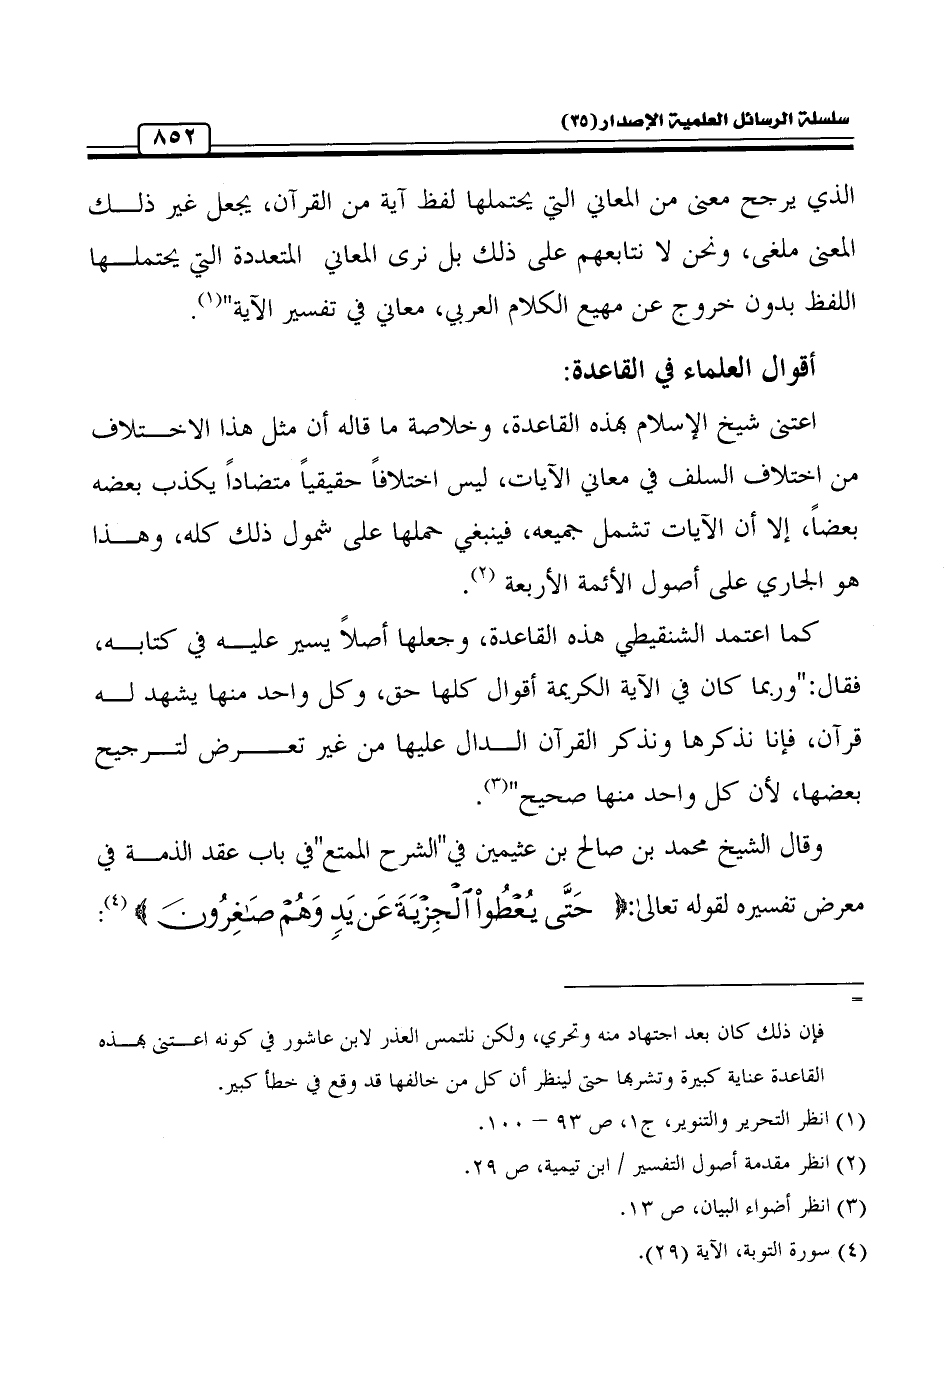 سلسلة الرسائل العلمية الإصدار (٢٥)
٨٥٢
الذي يرجح معنى من المعاني التي يحتملها لفظ آية من القرآن، يجعل غير ذلك
المعنى ملغى، ونحن لا نتابعهم على ذلك بل نرى المعاني المتعددة التي يحتملها
اللفظ بدون خروج عن مهيع الكلام العربي، معاني في تفسير الآية"(١).
أقوال العلماء في القاعدة:
اعتنى شيخ الإسلام بهذه القاعدة، وخلاصة ما قاله أن مثل هذا الاختلاف
من اختلاف السلف في معاني الآيات، ليس اختلافاً حقيقياً متضاداً يكذب بعضه
بعضاً، إلا أن الآيات تشمل جميعه، فينبغي حملها على شمول ذلك كله، وهذا
هو الجاري على أصول الأئمة الأربعة (٢).
كما اعتمد الشنقيطي هذه القاعدة، وجعلها أصلاً يسير عليه في كتابه،
فقال:"وربما كان في الآية الكريمة أقوال كلها حق، وكل واحد منها يشهد له
قرآن، فإنا نذكرها ونذكر القرآن الدال عليها من غير تعرض لترجيح
بعضها، لأن كل واحد منها صحيح"(٣).
وقال الشيخ محمد بن صالح بن عثيمين في"الشرح الممتع"في باب عقد الذمة في
معرض تفسيره لقوله تعالى:﴿ حَتَّى يُعْطُوا۟ ٱلْجِزْيَةَ عَن يَدٍ وَهُمْ صَٰغِرُونَ ﴾ (٤):
=
فإن ذلك كان بعد اجتهاد منه وتحري، ولكن نلتمس العذر لابن عاشور في كونه اعتنى بهذه
القاعدة عناية كبيرة وتشربها حتى لينظر أن كل من خالفها قد وقع في خطأ كبير.
(١) انظر التحرير والتنوير، ج١، ص ٩٣ – ١٠٠.
(٢) انظر مقدمة أصول التفسير / ابن تيمية، ص ٢٩.
(٣) انظر أضواء البيان، ص ١٣.
(٤) سورة التوبة، الآية (٢٩).